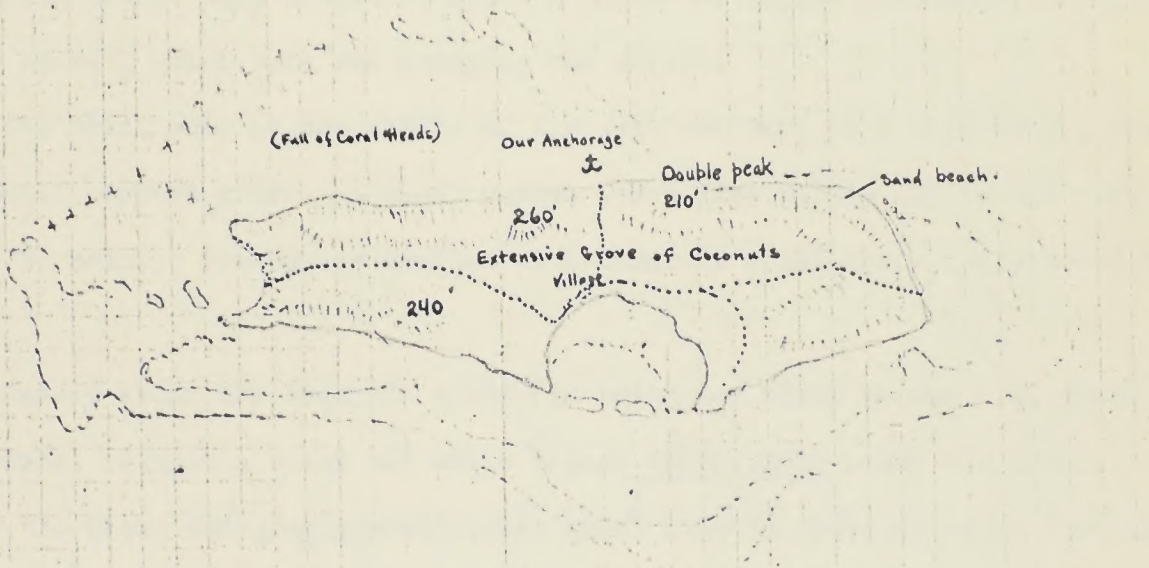 (Full of Coral Heads)
Our Anchorage
Double peak
Sand beach.
210'
260'
Extensive Grove of Coconuts
Village
240'